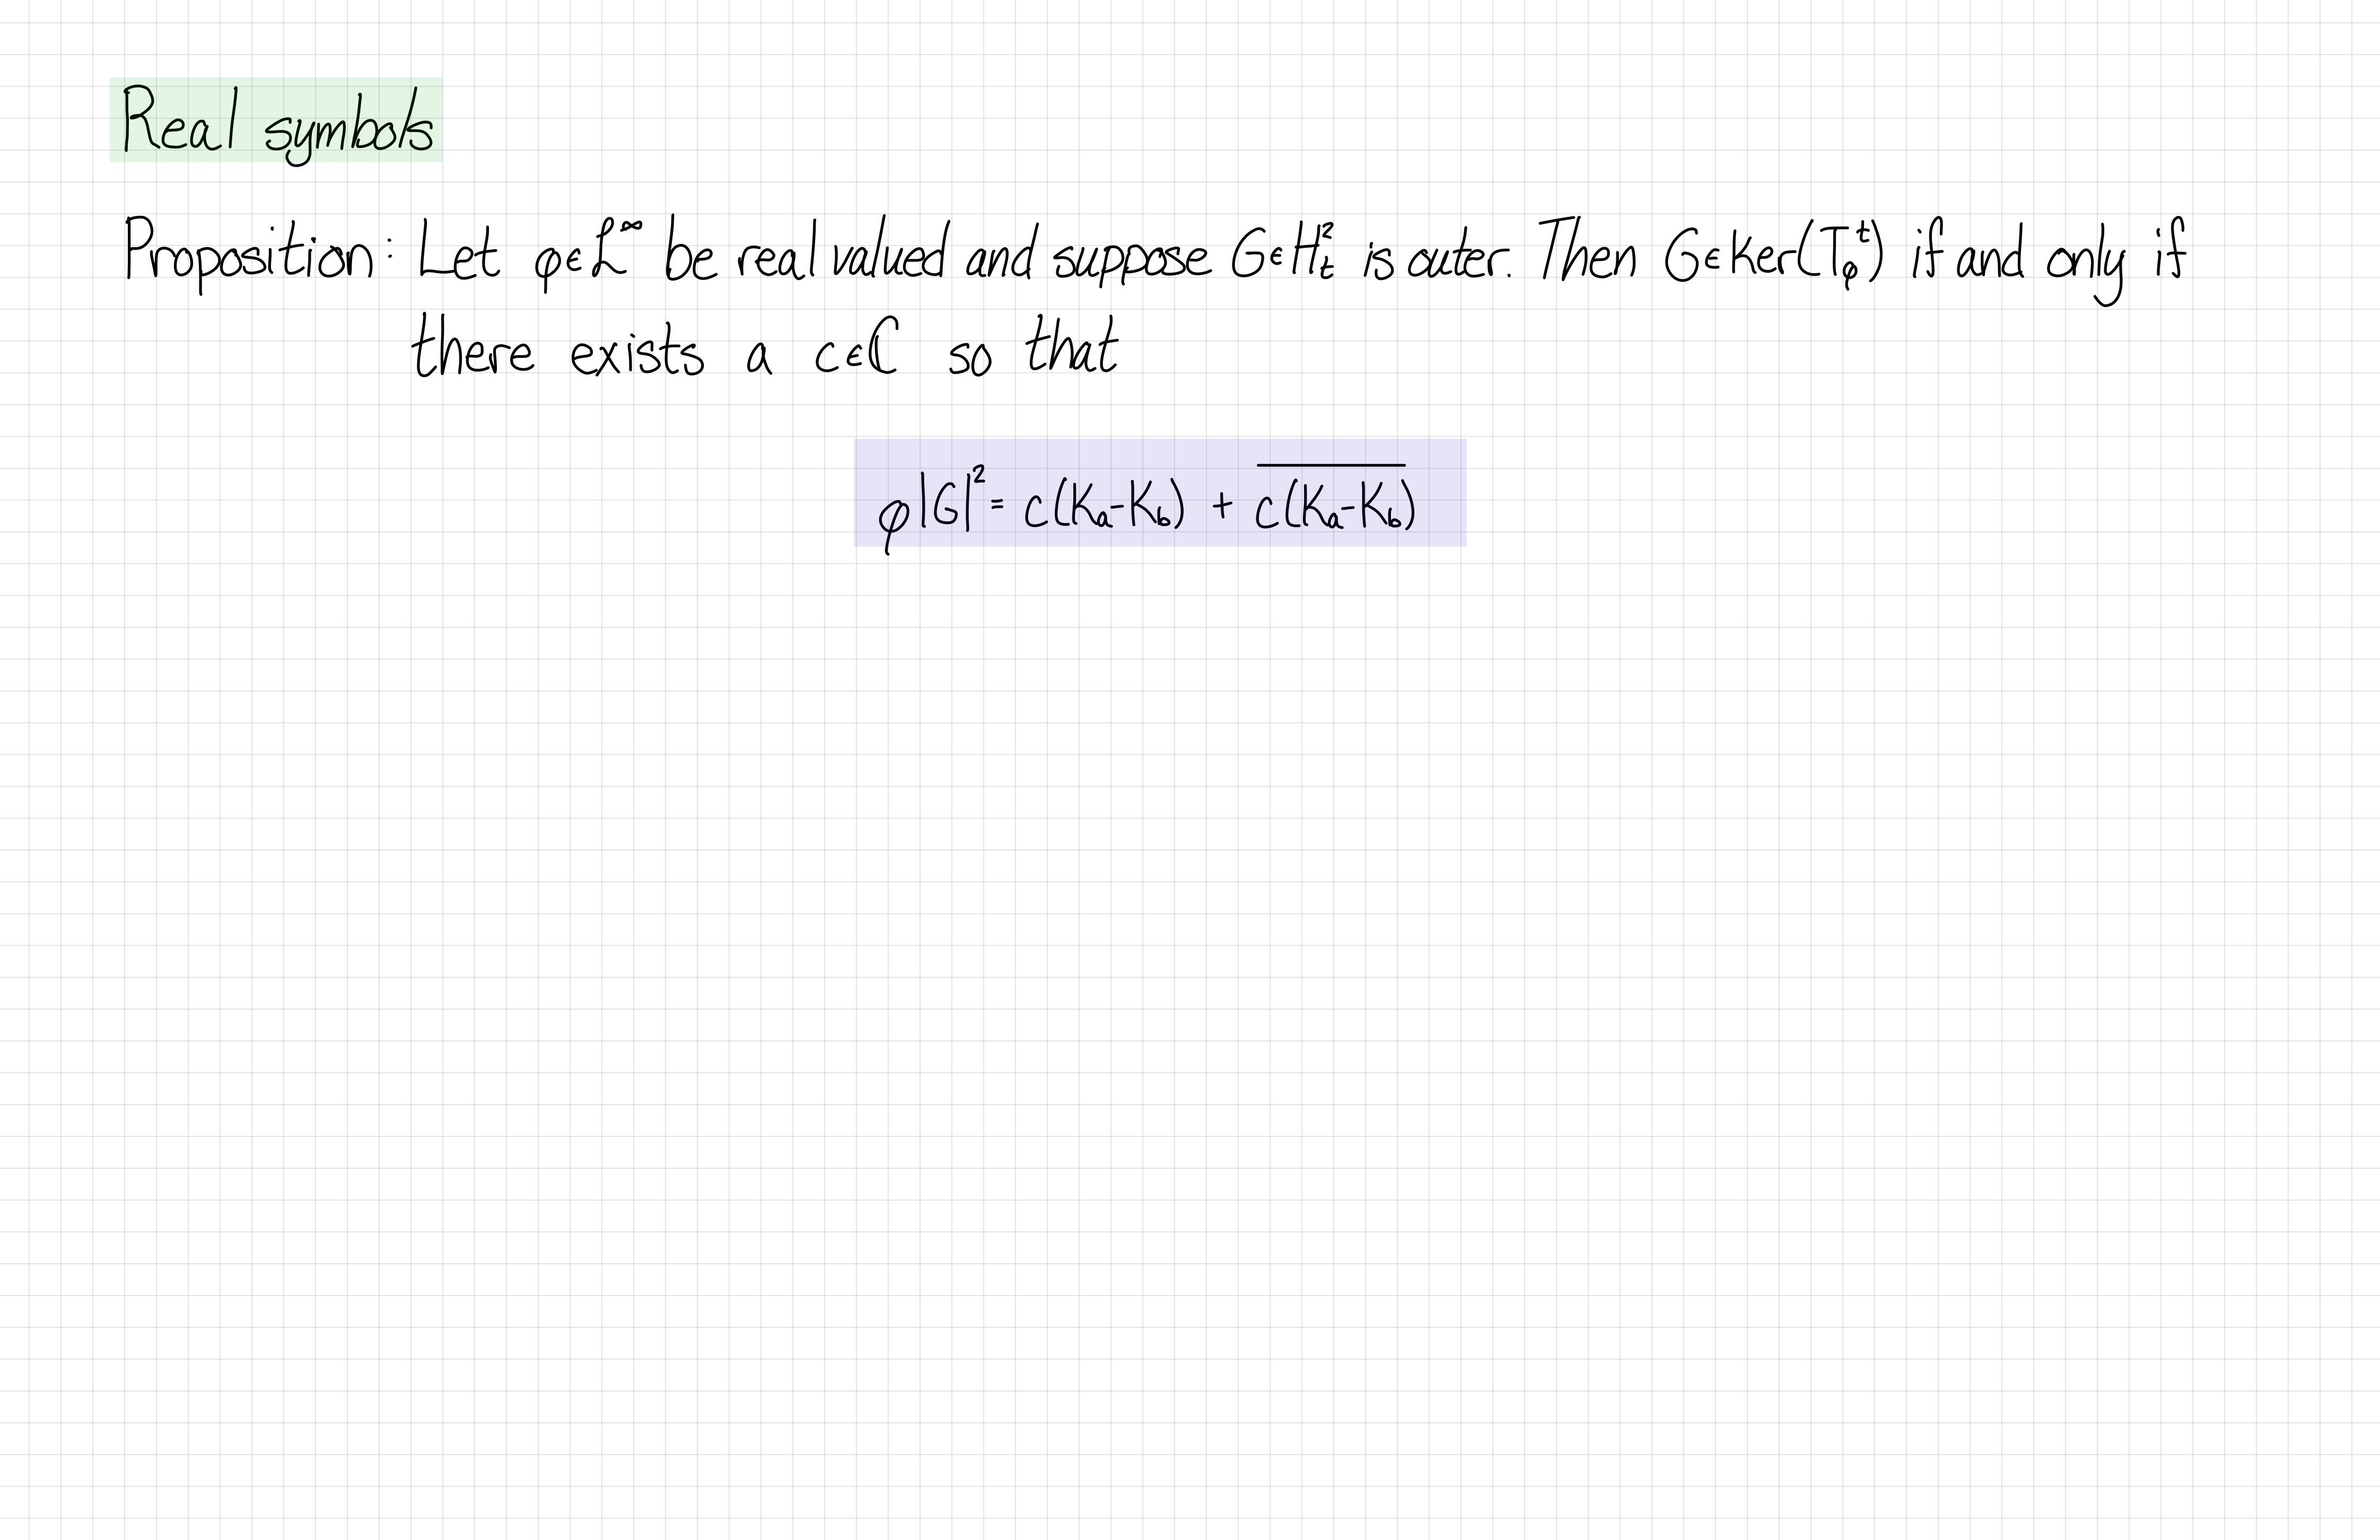 Real symbols
Proposition: Let φ∈L^∞ be real valued and suppose G∈H²_t is outer. Then G∈Ker(T^t_φ) if and only if
there exists a c∈ℂ so that
φ|G|² = c(K_a-K_b) + \overline{c(K_a-K_b)}